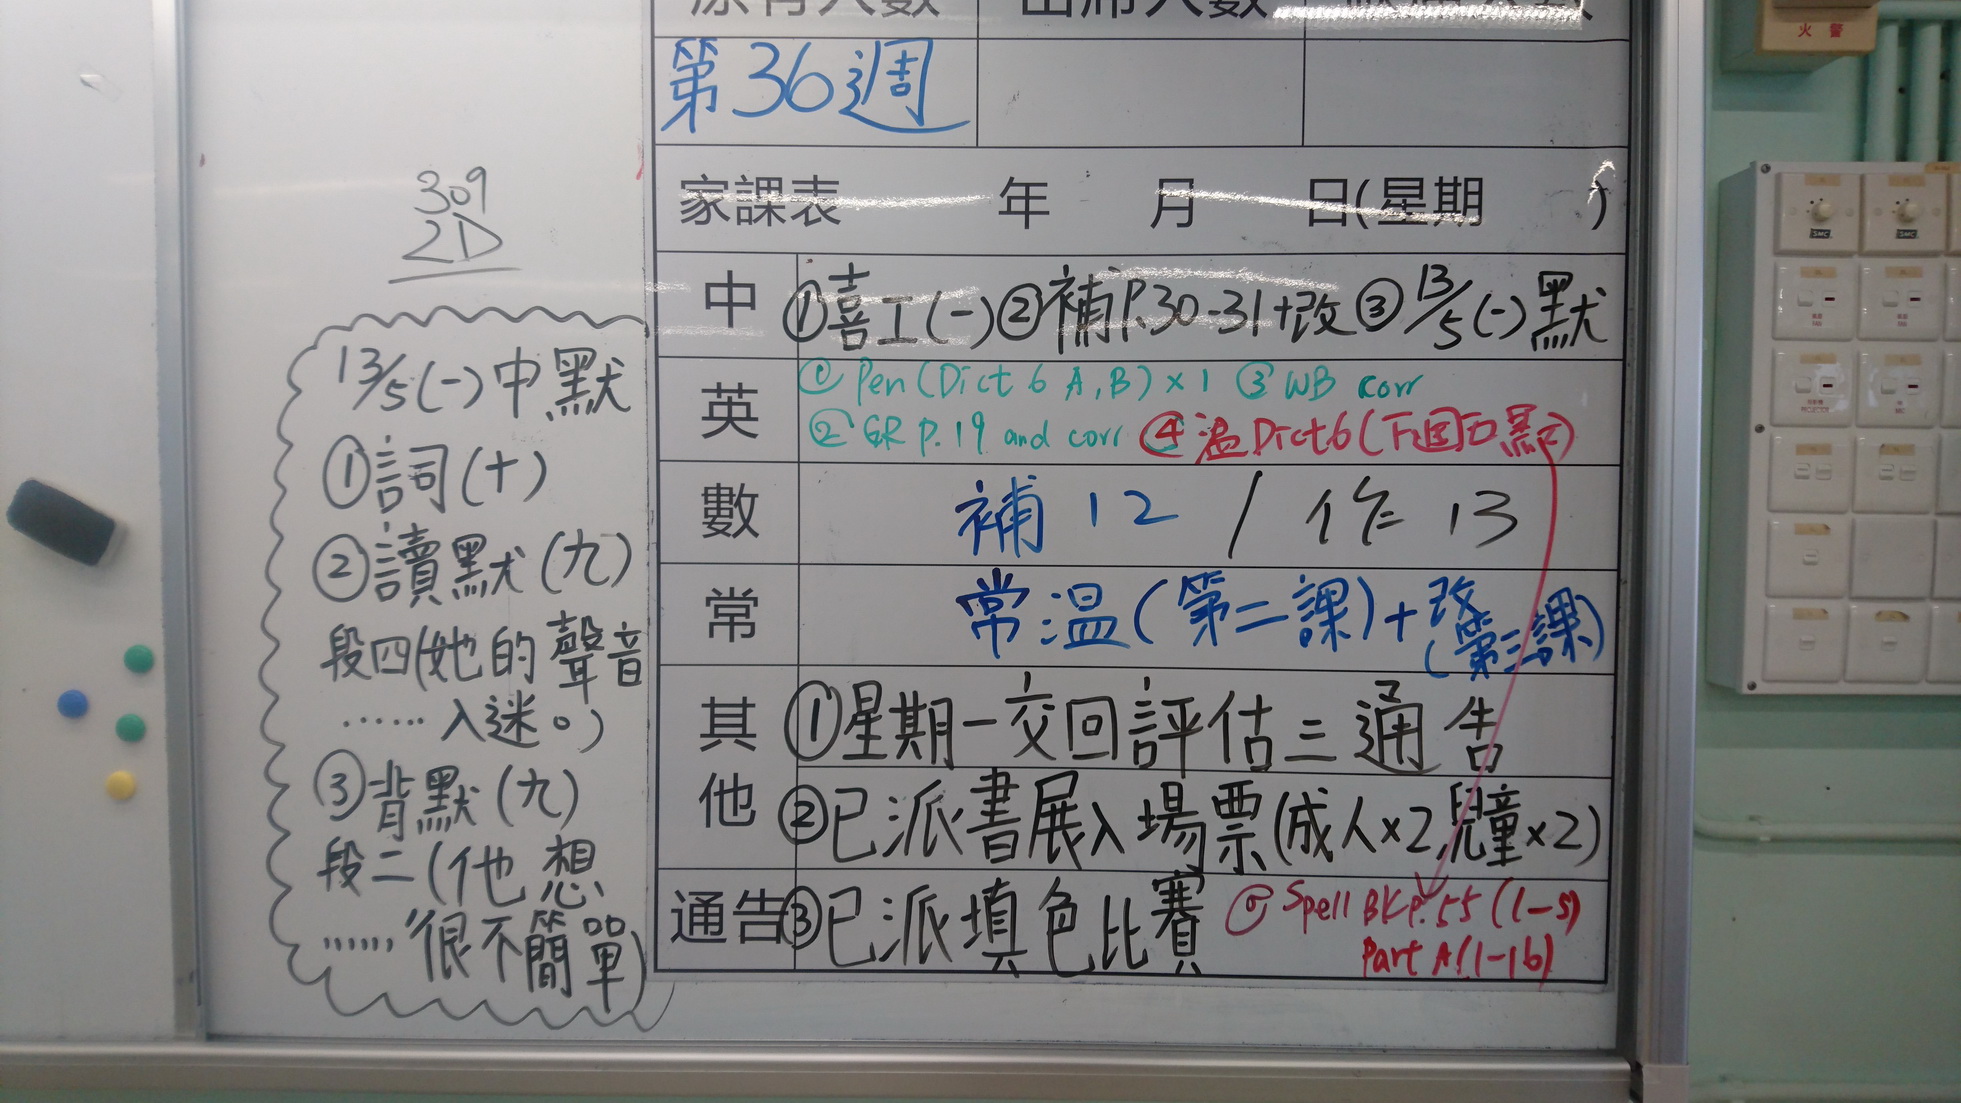 火警
第36週
家課表 年 月 日(星期 )
309
2D
13/5(一)中默
①詞(十)
②讀默(九)
段四(她的聲音
……入迷。)
③背默(九)
段二(他想
……很不簡單)
中 ①喜工(一)②補P.30-31+改③13/5(一)默
英 ①Pen(Dict 6 A,B)×1 ③WB corr
②GR P.19 and corr ④溫Dict6(下週二默)
數 補12/作13
常 常溫(第二課)+改
(第三課)
其他 ①星期一交回評估三通告
②已派書展入場票(成人×2,兒童×2)
通告 ③已派填色比賽 ⑤Spell BK P.55 (1-5)
Part A(1-16)